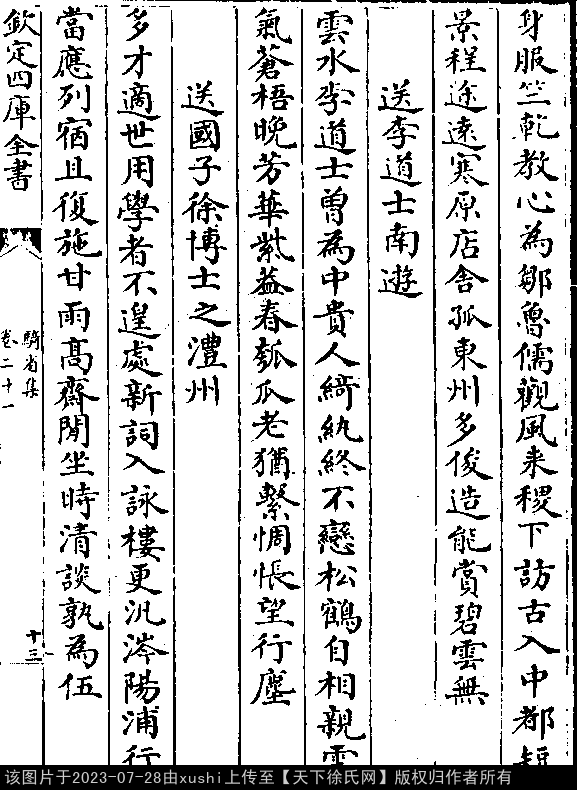 身服竺乾教心為鄒魯儒觀風来稷下訪古入中都短
景程途遠寒原店舎孤東州多俊造能賞碧雲無
送李道士南遊
雲水李道士曽為中貴人綺紈終不戀松鶴自相親雲
氣蒼梧晚芳華紫葢春瓠瓜老猶繫惆悵望行塵
送國子徐博士之澧州
多才適世用學者不遑處新詞入詠樓更汎涔陽浦行
當應列宿且復施甘雨髙齋閒坐時清談孰為伍
欽定四庫全書
騎省集
卷二十一
十三
该图片于2023-07-28由xushi上传至【天下徐氏网】版权归作者所有